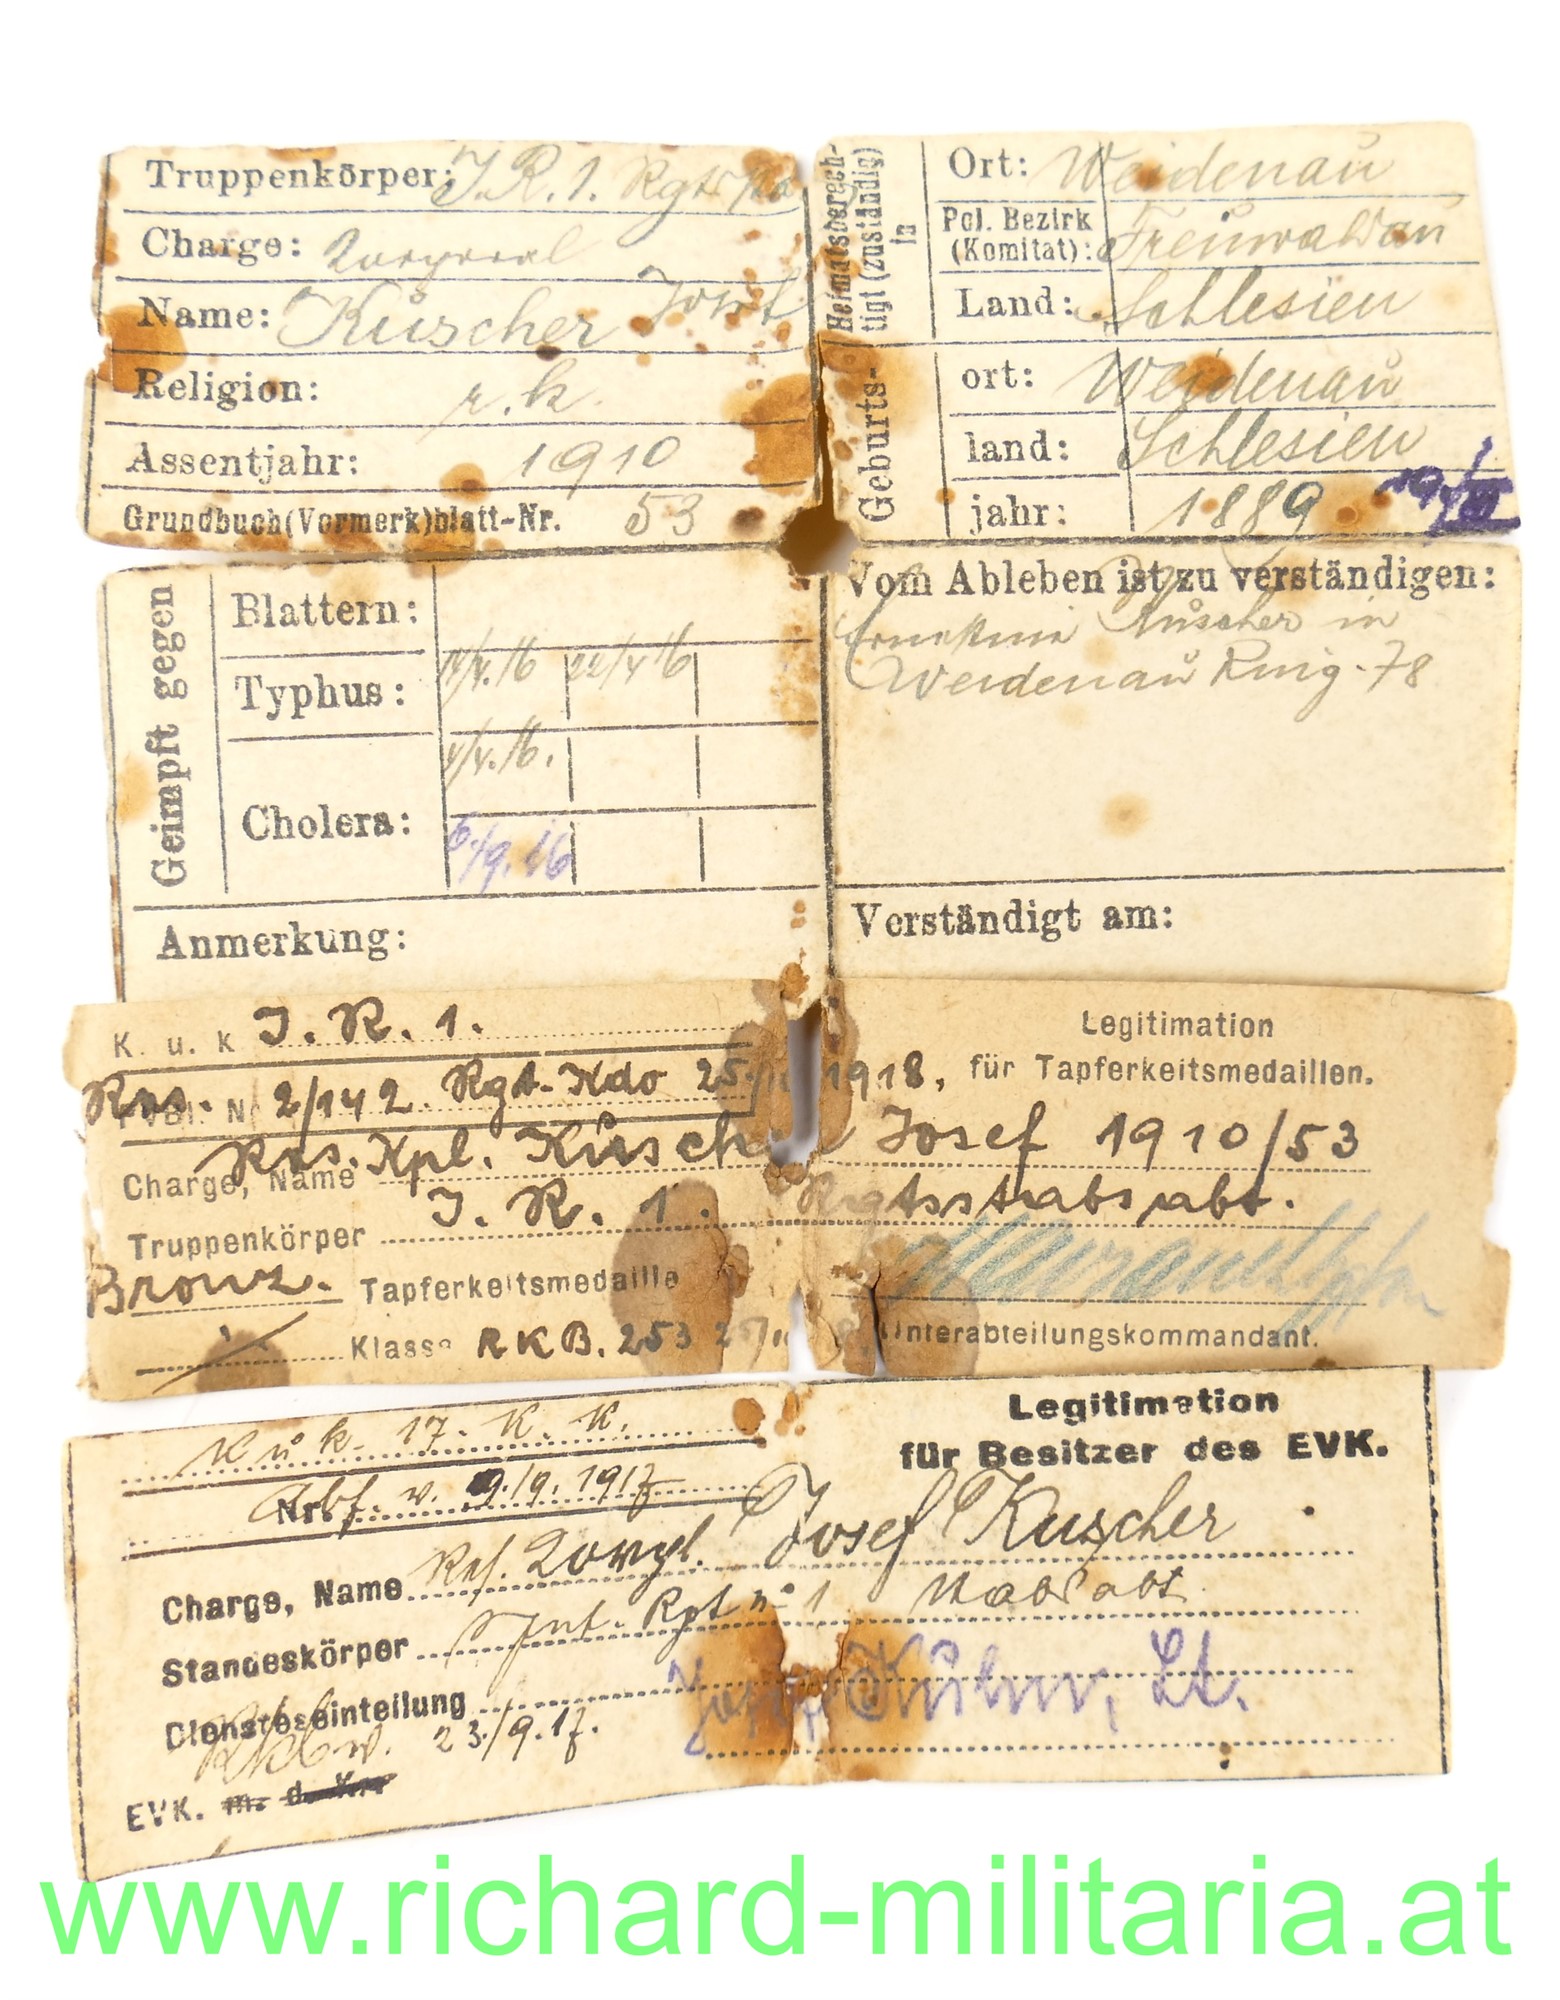 Truppenkörper: I.R.1. Rgts
Charge: Korporal
Name: Kuscher Josef
Religion: r.k.
Assentjahr: 1910
Grundbuch(Vormerk)blatt-Nr. 53
Heimatsberech-
tigt (zuständig)
in
Ort: Weidenau
Pol. Bezirk
(Komitat): Freiwaldau
Land: Schlesien
Geburts-
ort: Weidenau
land: Schlesien
jahr: 1889
Geimpft gegen
Blattern:
Typhus: 22/4 16
Cholera:
6./9. 16
Anmerkung:
Vom Ableben ist zu verständigen:
Kuscher in
Weidenau Ring 78
Verständigt am:
K. u. k I. R. 1.
Res. 2/142. Rgt-Kdo 25. 1918,
Legitimation
für Tapferkeitsmedaillen.
Charge, Name Res. Kpl. Kusch Josef 1910/53
Truppenkörper I. R. 1. Rgtsstabsabt.
Bronz. Tapferkeitsmedaille
Klasse RKB. 253
Unterabteilungskommandant.
K u k. 17. K. K.
Nr. Abf. v. 9./9. 1917
Legitimation
für Besitzer des EVK.
Charge, Name Res. Korpl. Josef Kuscher
Standeskörper Inf. Rgt No 1 Stabsabt.
Diensteseinteilung
23./9.17.
Josef Kuhn, Lt.
EVK. m. d. K.
www.richard-militaria.at